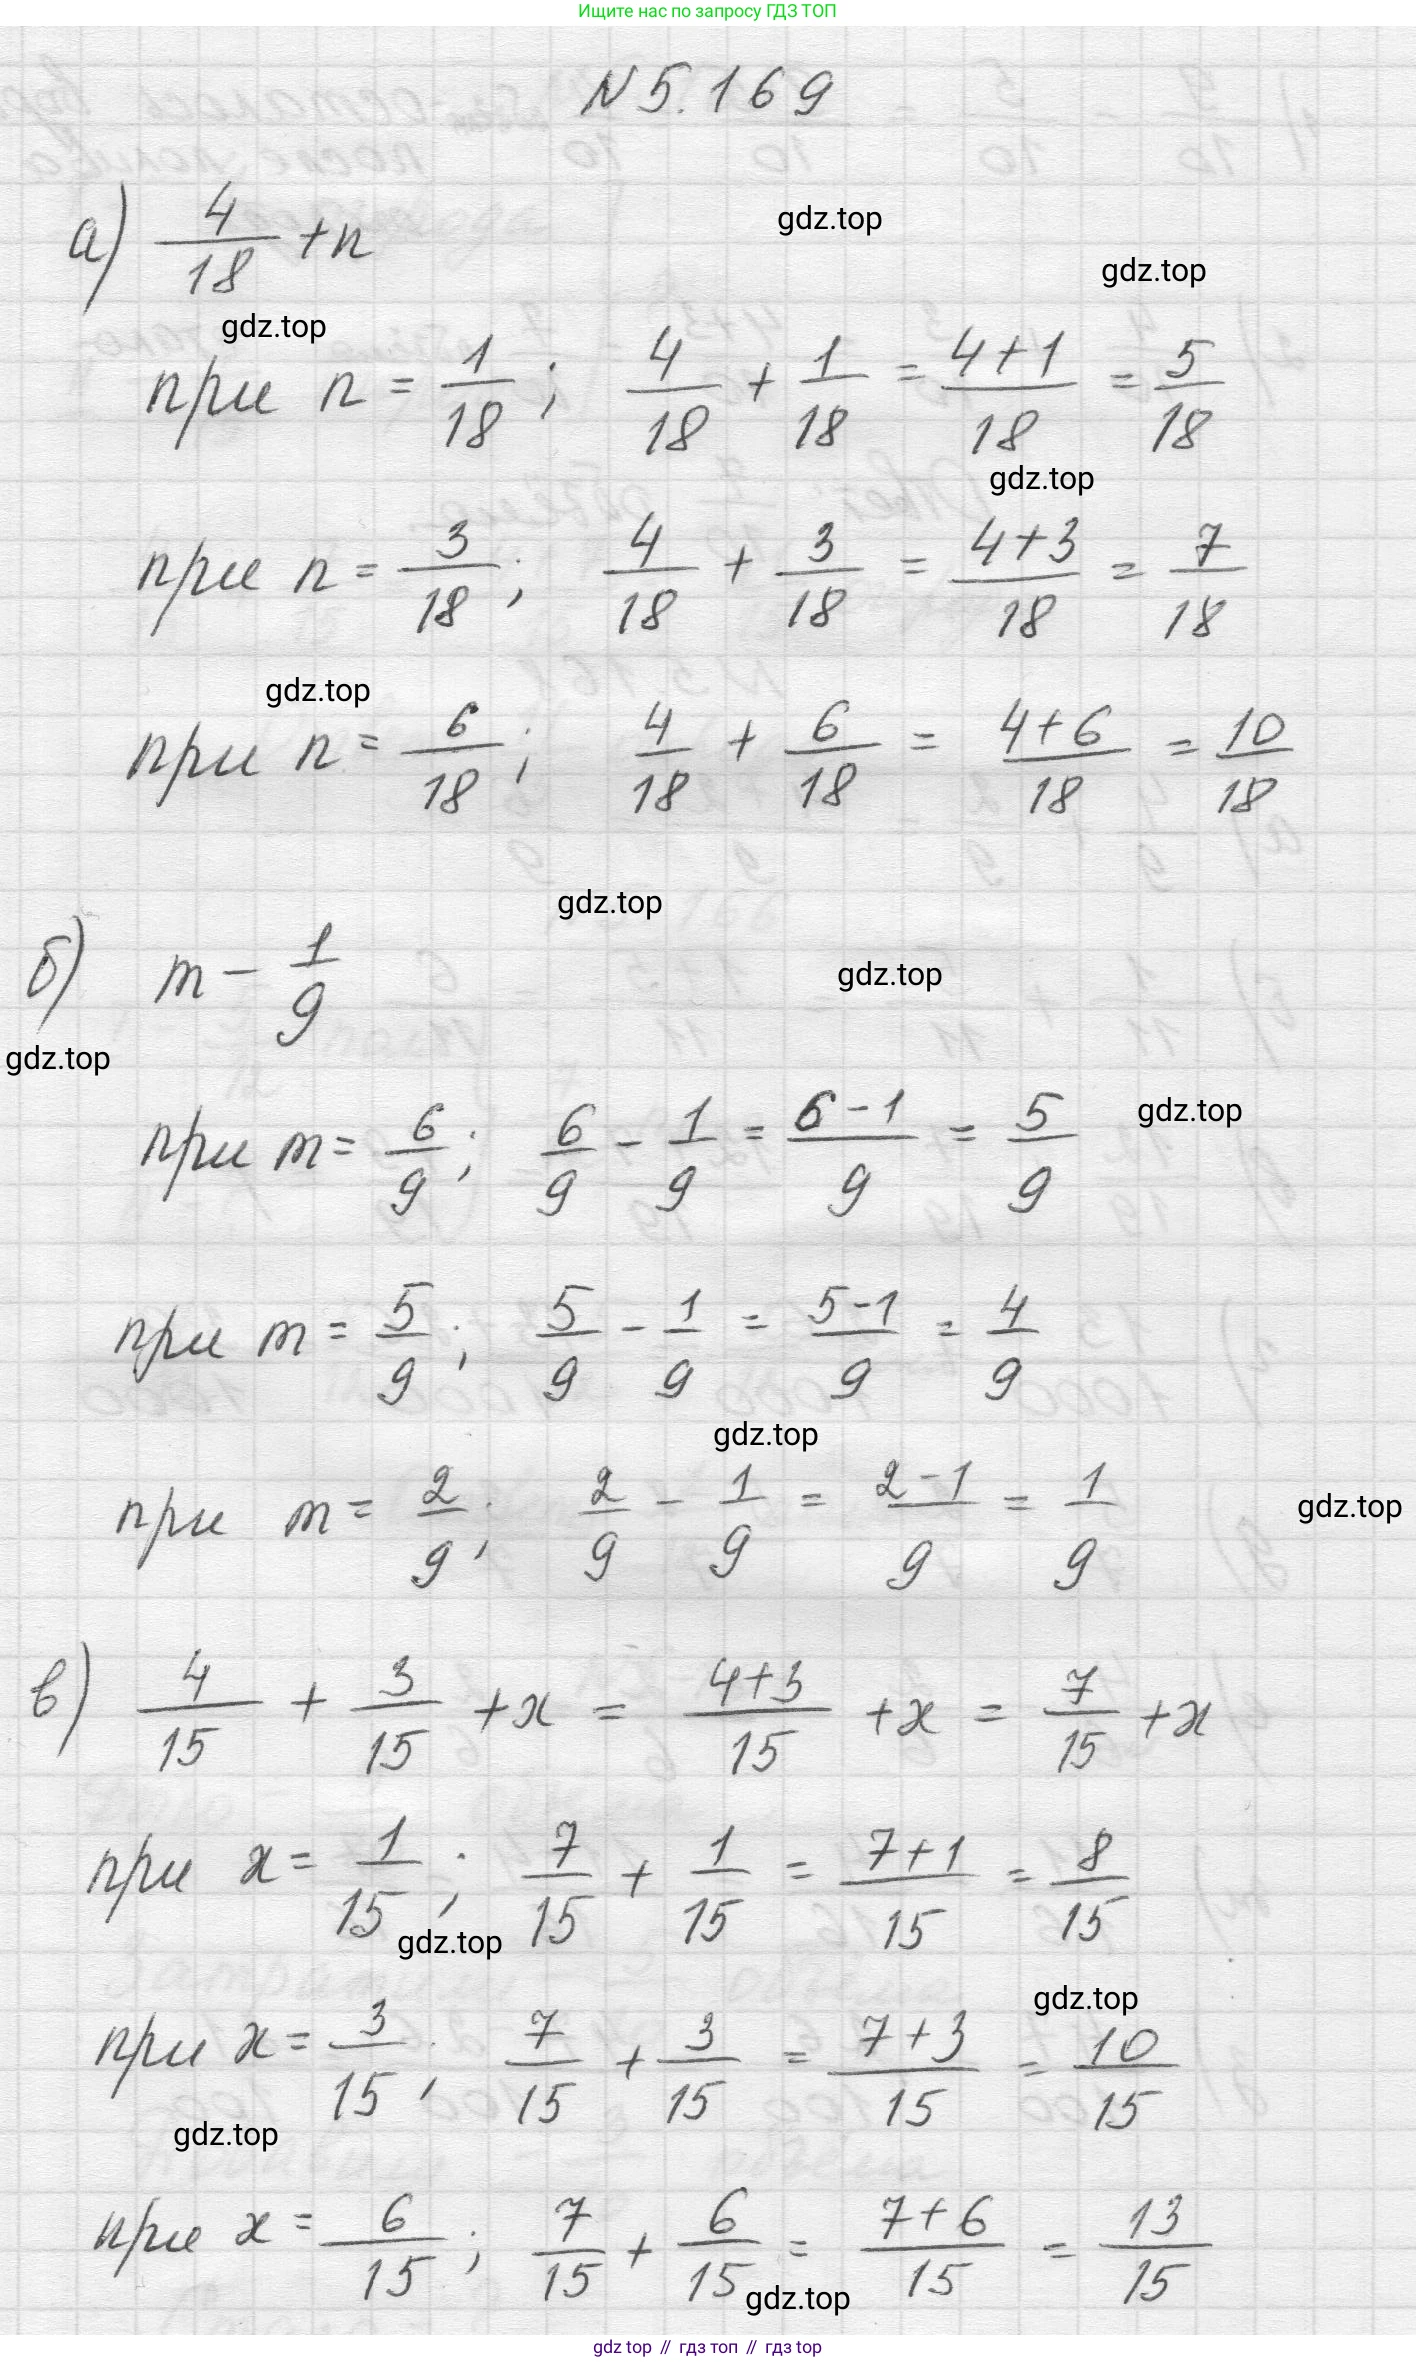 Ищите нас по запросу ГДЗ ТОП
N 5.169
gdz.top
а) 4/18 + n
gdz.top
gdz.top
при n = 1/18; 4/18 + 1/18 = (4+1)/18 = 5/18
gdz.top
при n = 3/18; 4/18 + 3/18 = (4+3)/18 = 7/18
gdz.top
при n = 6/18; 4/18 + 6/18 = (4+6)/18 = 10/18
gdz.top
б) m - 1/9
gdz.top
gdz.top
gdz.top
при m = 6/9; 6/9 - 1/9 = (6-1)/9 = 5/9
при m = 5/9; 5/9 - 1/9 = (5-1)/9 = 4/9
gdz.top
при m = 2/9; 2/9 - 1/9 = (2-1)/9 = 1/9
gdz.top
в) 4/15 + 3/15 + x = (4+3)/15 + x = 7/15 + x
при x = 1/15; 7/15 + 1/15 = (7+1)/15 = 8/15
gdz.top
gdz.top
при x = 3/15; 7/15 + 3/15 = (7+3)/15 = 10/15
gdz.top
при x = 6/15; 7/15 + 6/15 = (7+6)/15 = 13/15
gdz.top
gdz top // гдз топ // гдз top